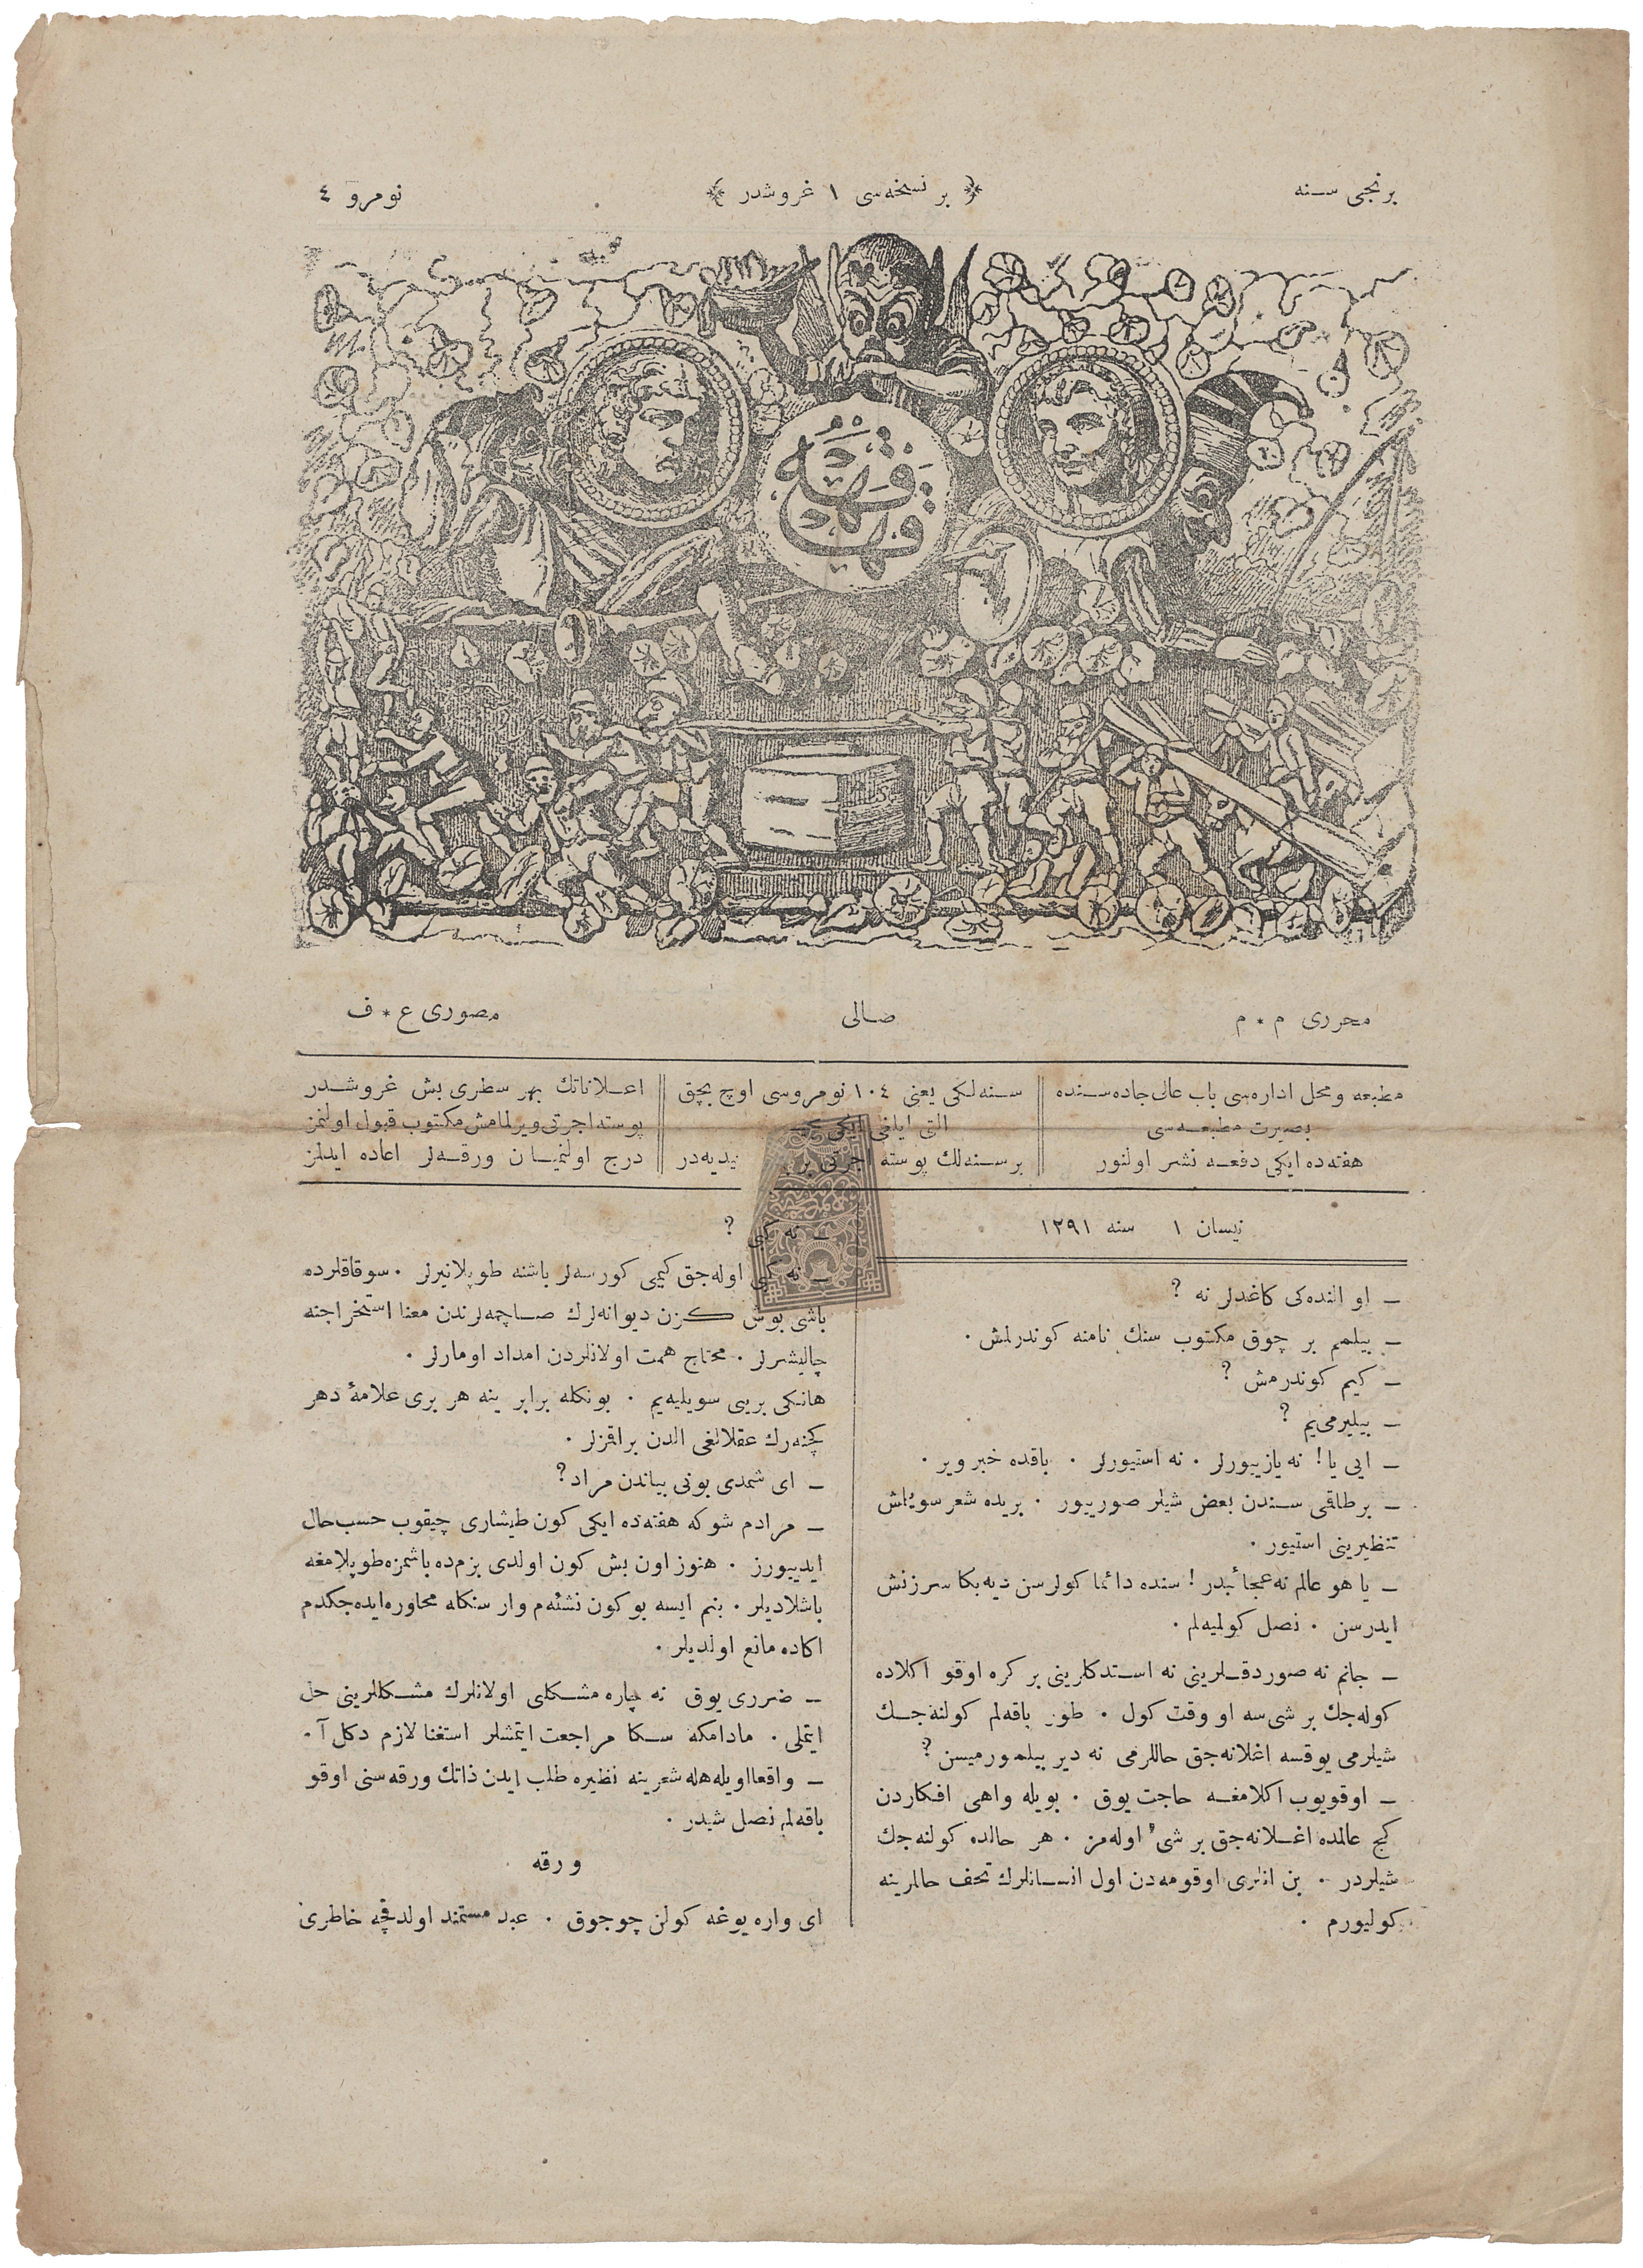 برنجی سنه
﴿ بر نسخه‌سی ١ غروشدر ﴾
نومرو ٤
قهقهه
محرری م * م
صالی
مصوری ع * ف
مطبعه و محل اداره‌سی باب عالی جاده‌سنده
بصیرت مطبعه‌سی
هفته‌ده ایکی دفعه نشر اولنور
سنه‌لکی یعنی ١٠٤ نومروسی اوچ بچق
التی ایلغی ایکی
برسنه‌لك پوسته اجرتی بر یدیه‌در
اعلاناتك بهر سطری بش غروشدر
پوسته اجرتی ویرلمامش مکتوب قبول اولنمز
درج اولنمیان ورقه‌لر اعاده ایدلمز
نیسان ١ سنه ١٢٩١
ــ او النده‌کی کاغدلر نه ؟
ــ بیلمم بر چوق مکتوب سنك نامنه کوندرلمش .
ــ کیم کوندرمش ؟
ــ بیلیرمی‌یم ؟
ــ ایی یا! نه یازییورلر . نه استیورلر . باقده خبر ویر .
ــ برطاقمی سندن بعض شیلر صورییور . بریده شعر سویلمش
تنظیرینی استیور .
ــ یا هو عالم نه عجائبدر ! سنده دائما کولرسن دیه بکا سرزنش
ایدرسن . نصل کولمیه‌لم .
ــ جانم نه صوردقلرینی نه استدکلرینی بر کره اوقو اکلاده
کوله‌جك بر شی‌سه او وقت کول . طور باقه‌لم کولنه‌جك
شیلرمی یوقسه اغلانه‌جق حاللرمی نه دیر بیلیورمیسن ؟
ــ اوقویوب اکلامغه حاجت یوق . بویله واهی افکاردن
کچ عالمده اغلانه‌جق بر شیء اوله‌مز . هر حالده کولنه‌جك
شیلردر . بن انلری اوقومه‌دن اول انسانلرك تحف حاللرینه
کولیورم .
ــ نه کبی ؟
ــ نه کبی اوله‌جق کیمی کورسه‌لر باشنه طوپلانیرلر . سوقاقلرده
باشی بوش کزن دیوانه‌لرك صاچمه‌لرندن معنا استخراجنه
چالیشرلر . محتاج همت اولانلردن امداد اومارلر .
هانکی برینی سویلیه‌یم . بونکله برابر ینه هر بری علامهٔ دهر
کچنه‌رك عقلالغی الدن براقمزلر .
ــ ای شمدی بونی بیاندن مراد؟
ــ مرادم شوکه هفته‌ده ایکی کون طیشاری چیقوب حسب حال
ایدییورز . هنوز اون بش کون اولدی بزم‌ده باشمزه طوپلامغه
باشلادیلر . بنم ایسه بو کون نشئه‌م وار سنکله محاوره ایده‌جکدم
اکاده مانع اولدیلر .
ــ ضرری یوق نه چاره مشکلی اولانلرك مشکللرینی حل
ایتملی . مادامکه سکا مراجعت ایتمشلر استغنا لازم دکل آ .
ــ واقعا اویله هله شعرینه نظیره طلب ایدن ذاتك ورقه‌سنی اوقو
باقه‌لم نصل شیدر .
ورقه
ای واره یوغه کولن چوجوق . عبد مستمند اولدقچه خاطری